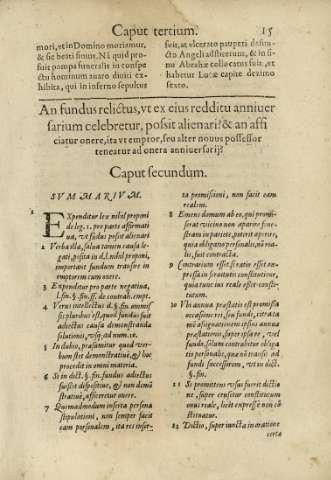 Caput tertium. 15
mori, vt in Domino moriamur,
& sic beati simus. Nã quid pro-
fuit pompa funeralis in conspe
ctu hominum auaro diuiti ex-
hibita, qui in inferno sepultus
fuit, at vlcerato pauperi defun-
cto Angeli adstiterunt, & in si-
nu Abrahæ collocatus fuit, vt
habetur Lucæ capite decimo
sexto.
An fundus relictus, vt ex eius redditu anniuer
sarium celebretur, possit alienari? & an affi
ciatur onere, ita vt emptor, seu alter nouus possessor
teneatur ad onera anniuersarij?
Caput secundum.
SVMMARIVM.
1 EXpenditur lex nihil proponi
de leg. 1. pro parte affirmati
ua, vt fũdus possit alienari
2 Verba illa, salua tamen causa le-
gati, posita in d. l. nihil proponi,
important fundum transire in
emptorem cum onere.
3 Expenditur pro parte negatiua,
l. fin. §. fin. ff. de contrah. empt.
4 Verus intellectus d. §. fin. ammis-
sis pluribus est, quod fundus fuit
adiectus causa demonstranda
solutionis, vsq. ad num. 12.
5 In dubio, præsumitur quod ver-
bum stet demonstratiuè, & hoc
procedit in omni materia.
6 Si in dict. §. fin. fundus adiectus
fuisset dispositiuè, & non demõ
stratiuè, afficeretur onere.
7 Quemadmodum inserta persona
stipulationi, non semper facit
eam personalem, ita res inser-
ta promissioni, non facit eam
realem.
8 Emens domum ab eo, qui promi-
serat vicino non aperire fene-
stram in pariete, poterit aperire,
quia obligatio personalis, nõ rea-
lis, fuit contracta.
9 Contrarium esset, si ratio esset ex-
pressa in seruitutis constitutione,
quia tunc ius reale esset consti-
tutum.
10 Vbi annua præstatio est promissa
occasione rei, seu fundi, citra ta
mẽ assignationem ipsius annuæ
præstationis, super ipsare, vel
fundo, solum contrahitur obliga
tio personalis, quæ nõ transit ad
fundi successorem, vt in dict.
§. fin.
11 Si promittens vsus fuerit dictio
ne, super censetur constitutum
onus reale, licet expresse non cõ
stituatur.
12 Dictio, super iuncta in oratione
certa